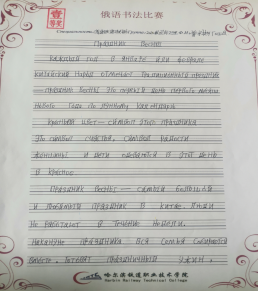 俄语书法比赛
Праздник Весны
Каждый год в январе или феврале
китайский народ отмечает традиционный
праздник Весны. Это первый день первого месяца
Нового года по лунному календарю
Красный цвет — символ этого праздника
Это символ счастья, символ радости
Женщины и дети одеваются в этот день
в красное
Праздник Весны — самый большой
и любимый праздник в Китае. Люди
не работают в течение недели.
Накануне праздника вся семья собирается
вместе, готовит праздничный ужин,
哈尔滨铁道职业技术学院
Harbin Railway Technical College